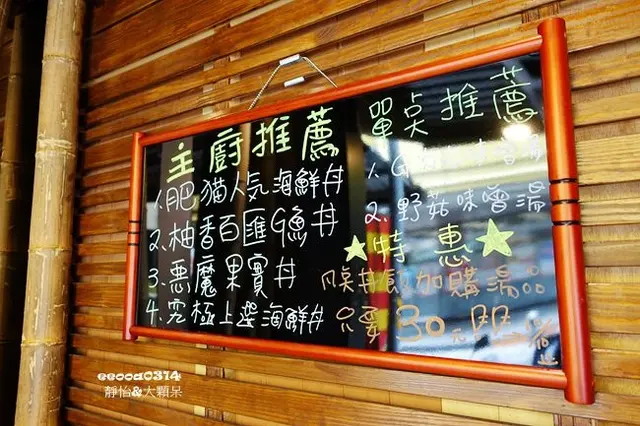 主廚推薦
1.肥貓人気海鮮丼
2.柚香百匯魚丼
3.惡魔果實丼
4.究極上選海鮮丼
單点推薦
1.
2.野菇味噌湯
★特惠★
丼飯加購湯
只要30元
eeooa0314
靜怡&大顆呆